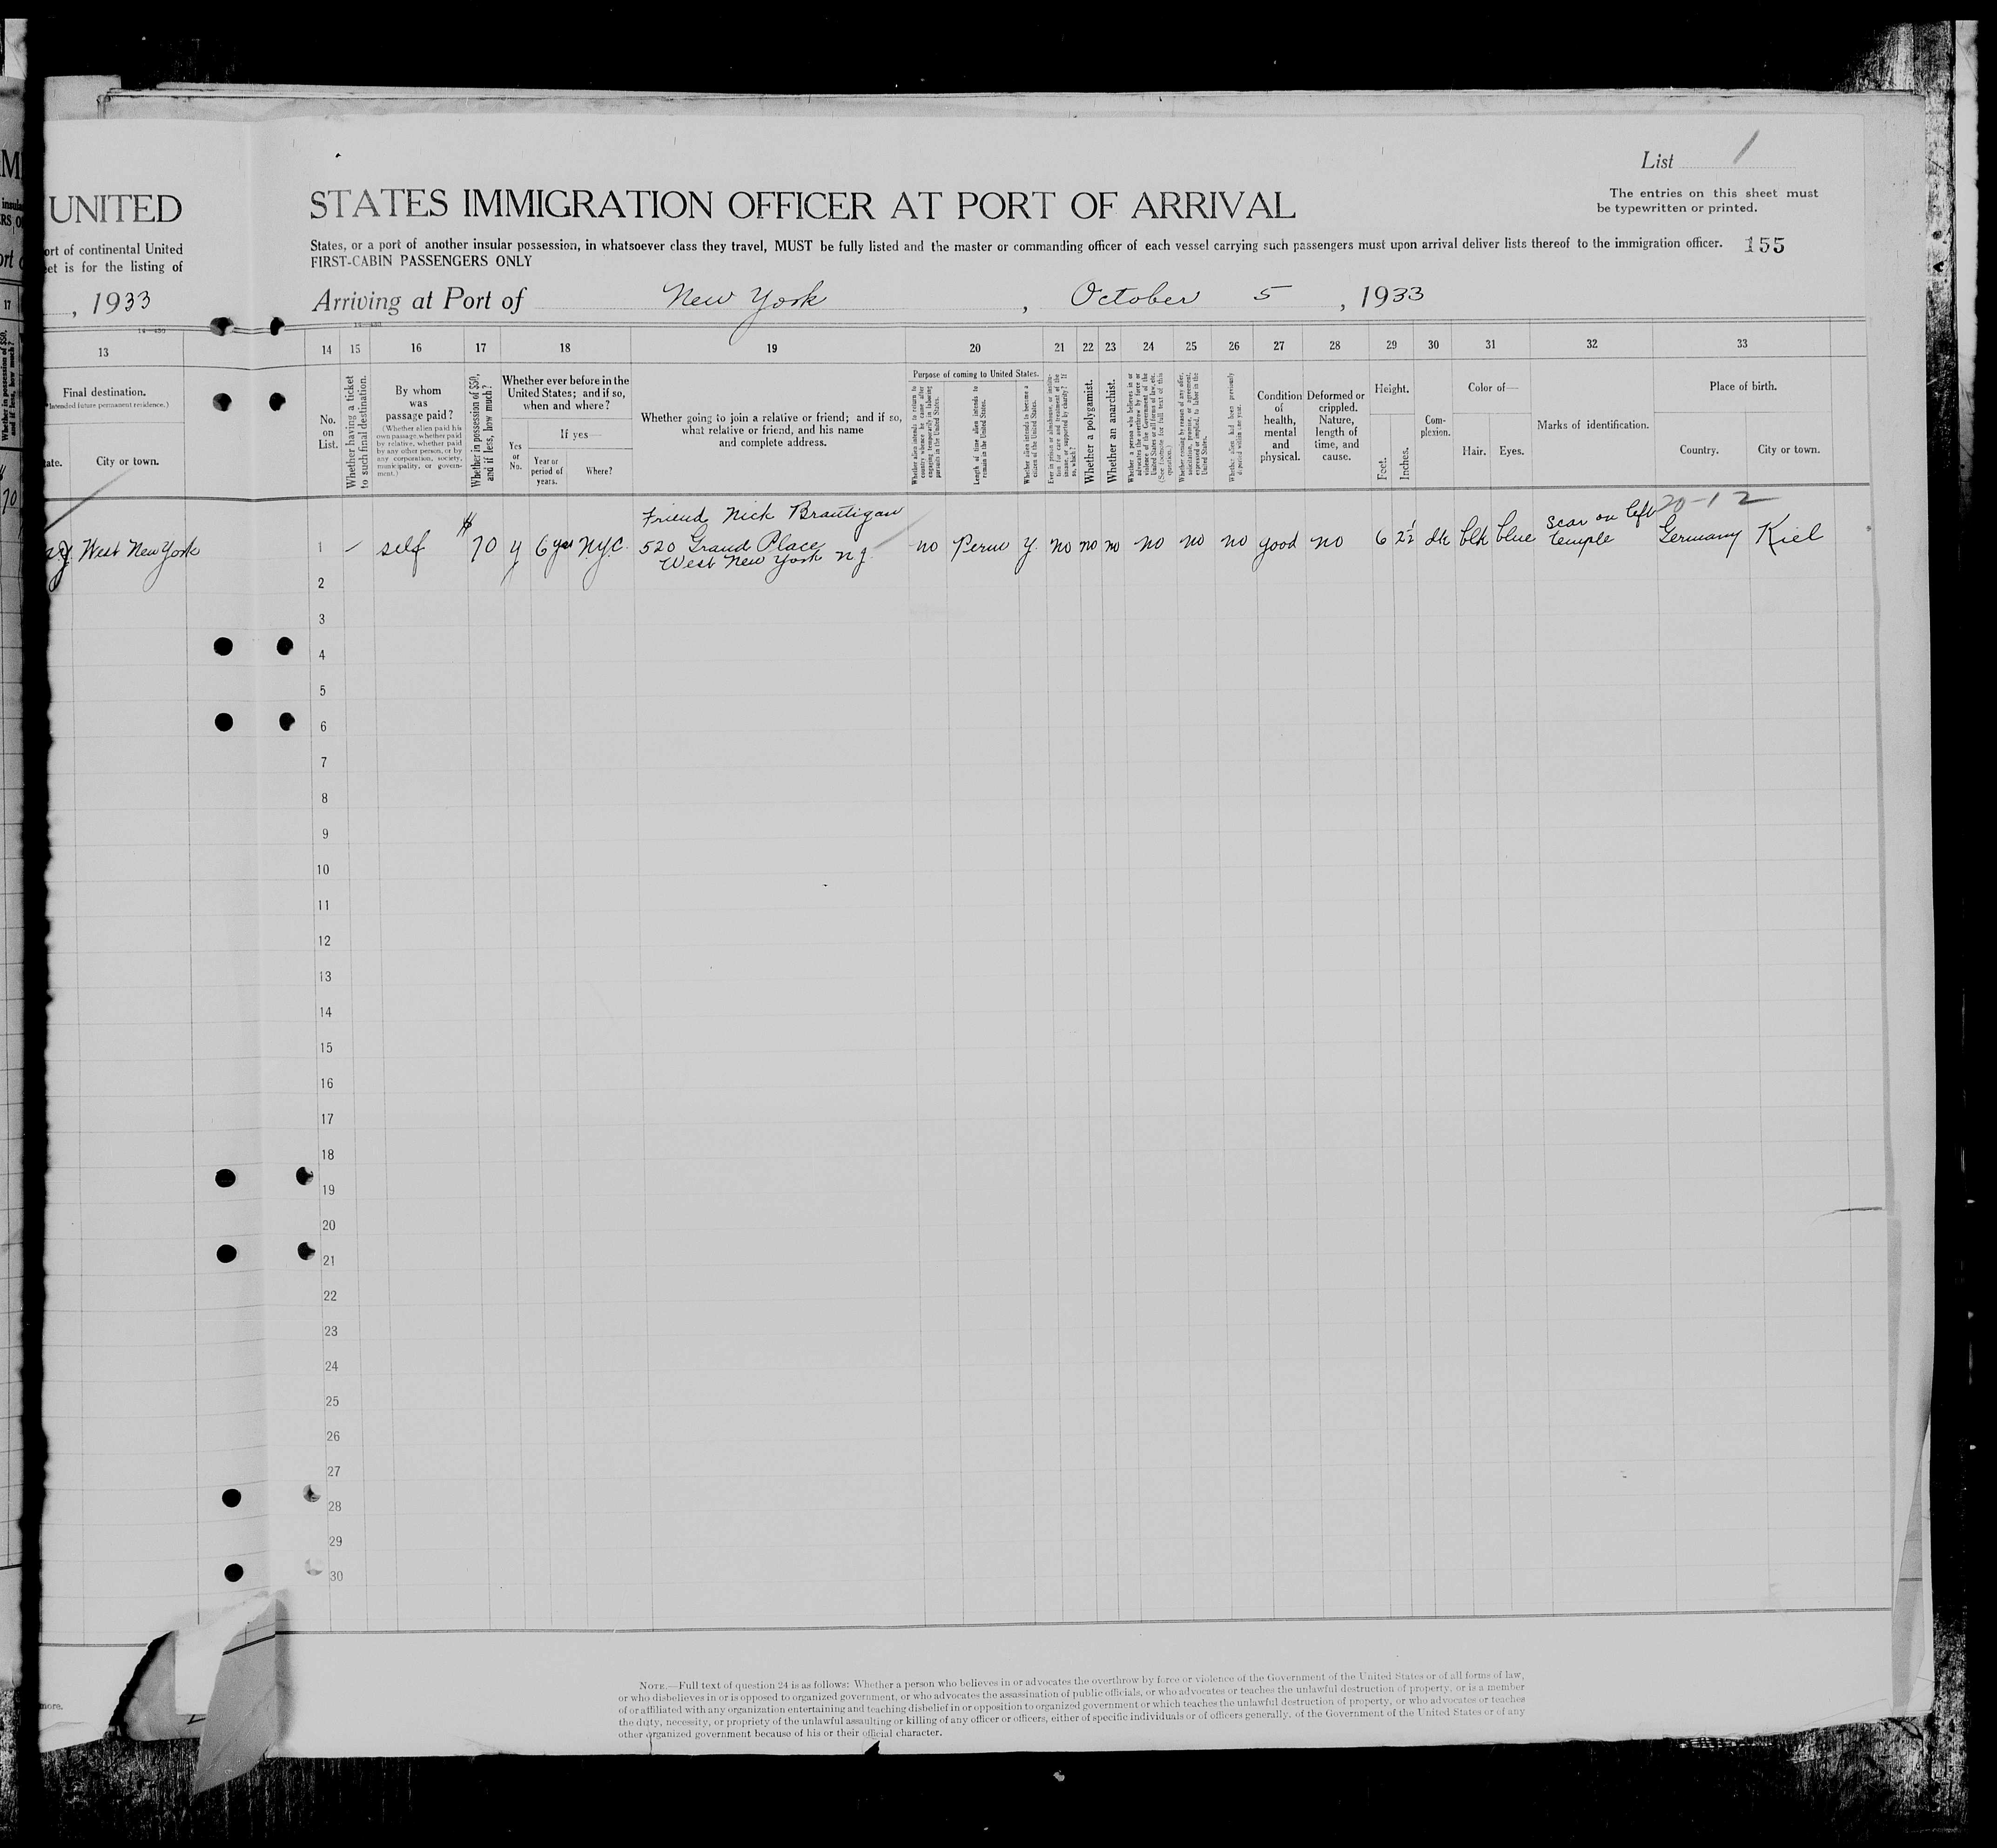 List 1
The entries on this sheet must
be typewritten or printed.
UNITED
STATES IMMIGRATION OFFICER AT PORT OF ARRIVAL
ort of continental United
et is for the listing of
States, or a port of another insular possession, in whatsoever class they travel, MUST be fully listed and the master or commanding officer of each vessel carrying such passengers must upon arrival deliver lists thereof to the immigration officer.
155
FIRST-CABIN PASSENGERS ONLY
, 1933
Arriving at Port of New York, October 5, 1933
13
14 15 16 17 18 19 20 21 22 23 24 25 26 27 28 29 30 31 32 33
Final destination.
(*Intended future permanent residence.)
ate.
City or town.
No.
on
List.
Whether having a ticket
to such final destination.
By whom
was
passage paid?
(Whether alien paid his
own passage, whether paid
by relative, whether paid
by any other person, or by
any corporation, society,
municipality, or govern-
ment.)
Whether in possession of $50,
and if less, how much?
Whether ever before in the
United States; and if so,
when and where?
Yes
or
No.
If yes—
Year or
period of
years.
Where?
Whether going to join a relative or friend; and if so,
what relative or friend, and his name
and complete address.
Purpose of coming to United States.
Whether alien intends to return to
country whence he came after
engaging temporarily in laboring
pursuits in the United States.
Length of time alien intends to
remain in the United States.
Whether alien intends to become a
citizen of the United States.
Ever in prison or almshouse, or institu-
tion for care and treatment of the
insane, or supported by charity? If
so, which?
Whether a polygamist.
Whether an anarchist.
Whether a person who believes in or
advocates the overthrow by force or
violence of the Government of the
United States or all forms of law, etc.
(See footnote for full text of this
question.)
Whether coming by reason of any offer,
solicitation, promise, or agreement,
expressed or implied, to labor in the
United States.
Whether alien had been previously
deported within one year.
Condition
of
health,
mental
and
physical.
Deformed or
crippled.
Nature,
length of
time, and
cause.
Height.
Feet.
Inches.
Com-
plexion.
Color of—
Hair.
Eyes.
Marks of identification.
Place of birth.
Country.
City or town.
20-12
Friend Nick Brautigan
N.J. West New York
1 – self $70 y 6 yrs N.Y.C. 520 Grand Place no Perm y. no no no no no no good no 6 2½ dk blk blue scar on left Germany Kiel
West New York N.J.
temple
2
3
4
5
6
7
8
9
10
11
12
13
14
15
16
17
18
19
20
21
22
23
24
25
26
27
28
29
30
NOTE.—Full text of question 24 is as follows: Whether a person who believes in or advocates the overthrow by force or violence of the Government of the United States or of all forms of law,
or who disbelieves in or is opposed to organized government, or who advocates the assassination of public officials, or who advocates or teaches the unlawful destruction of property, or is a member
of or affiliated with any organization entertaining and teaching disbelief in or opposition to organized government or which teaches the unlawful destruction of property, or who advocates or teaches
the duty, necessity, or propriety of the unlawful assaulting or killing of any officer or officers, either of specific individuals or of officers generally, of the Government of the United States or of any
other organized government because of his or their official character.
more.